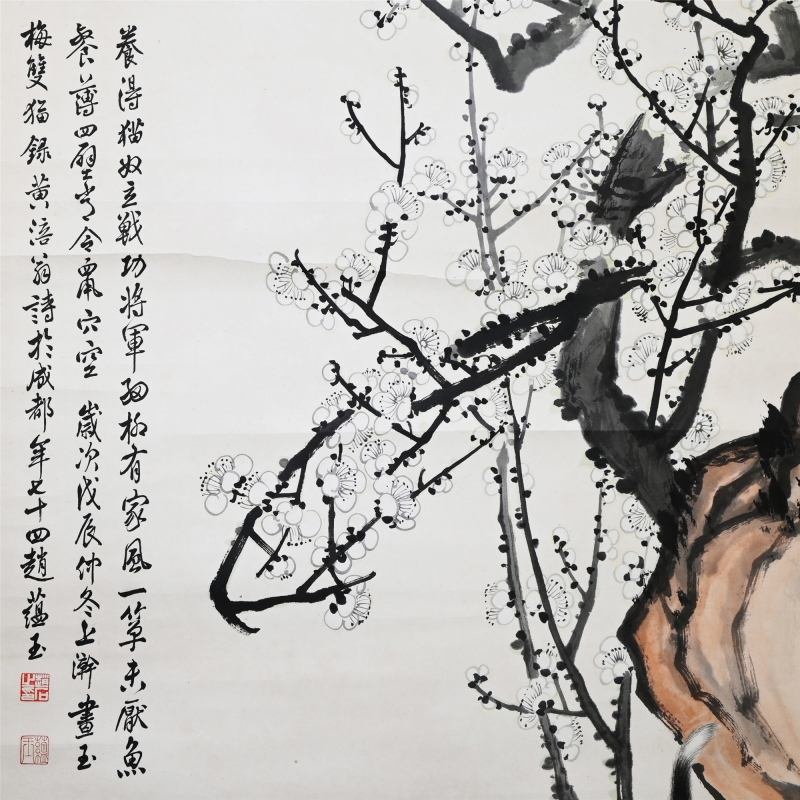 養得猫奴立战功將軍細柳有家風一簞未厭魚
餐薄四壁常令鼠穴空 歲次戊辰仲冬上澣畫玉
梅雙猫錄黄涪翁詩於成都年七十四趙蘊玉